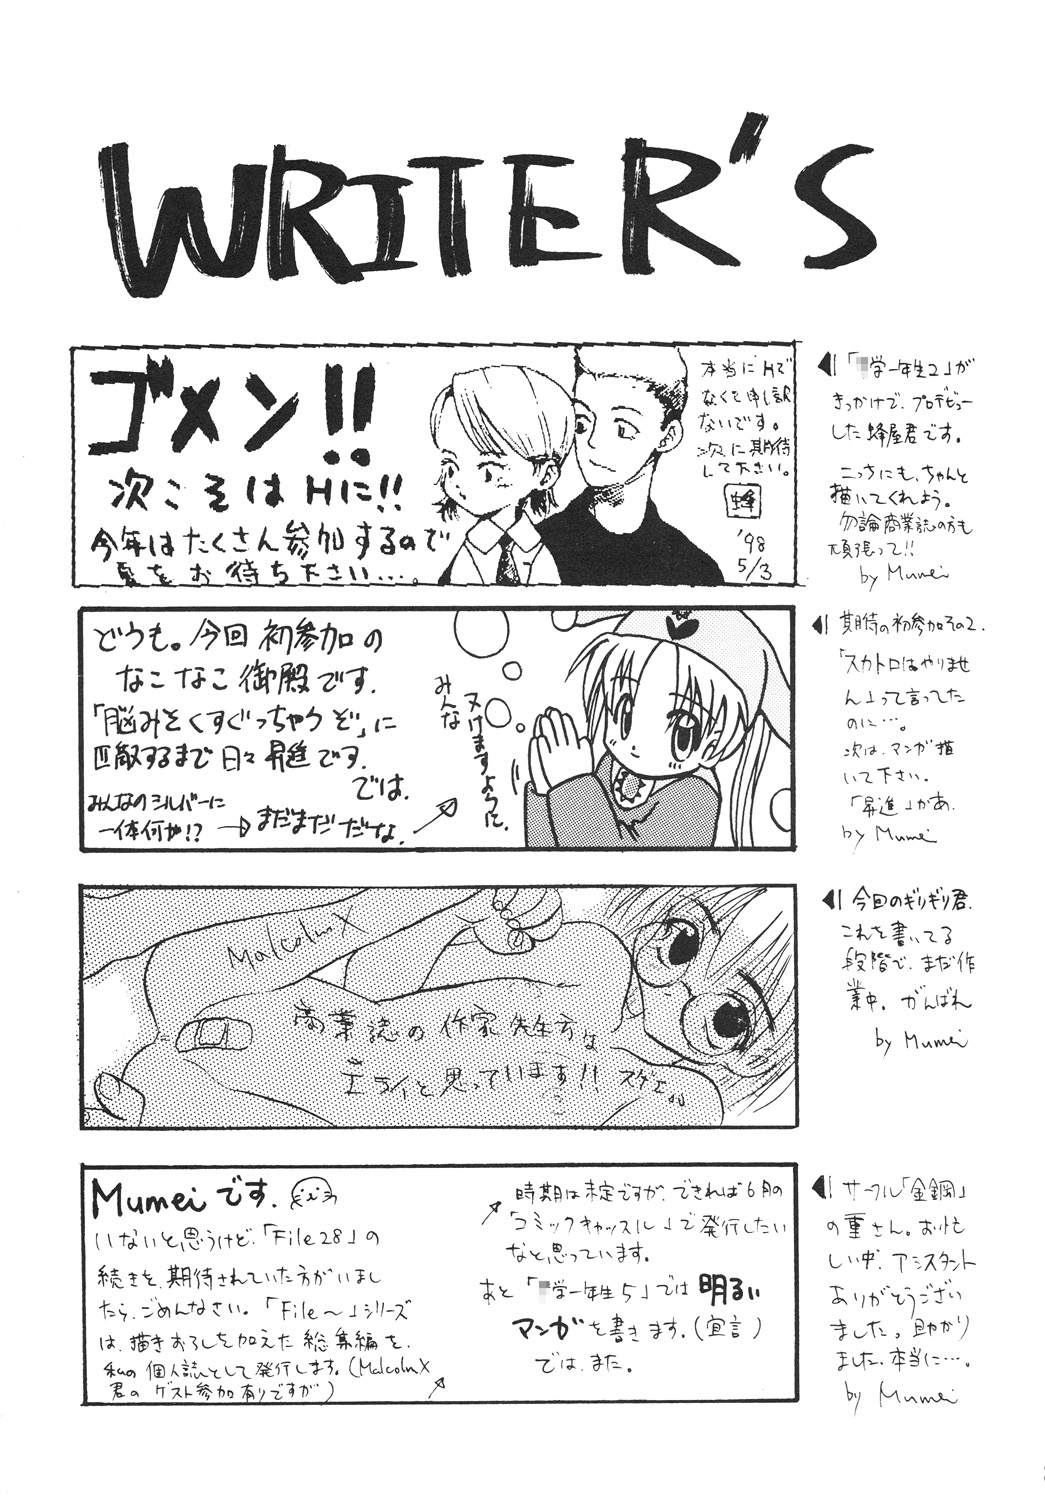 WRITER'S
ゴメン!!
次こそはHに!!
今年はたくさん参加するので
夏をお待ち下さい…。
本当にHで
なくて申し訳
ないです。
次に期待
して下さい。
蜂
'98
5/3
「学一年生2」が
きっかけで、プロデビュー
した蜂屋君です。
こっちにも、ちゃんと
描いてくれよう。
勿論商業誌の方も
頑張って!!
by Mumei
どうも。今回初参加の
なこなこ御殿です.
「脳みそくすぐっちゃうぞ」に
匹敵するまで日々昇進です.
では.
みんなのシルバーに
一体何が!?
まだまだだな.
みんな
ヌけますように.
期待の初参加その2.
「スカトロはやりませ
ん」って言ってた
のに…。
次は、マンガ描
いて下さい。
「昇進」かあ.
by Mumei
Malcolm X
商業誌の作家先生方な
エライと思っています!!
スゲェ。
今回のギリギリ君.
これを書いてる
段階で、まだ作
業中. がんばれ
by Mumei
Mumeiです.
いないと思うけど、「File28」の
続きを、期待されていた方がいまし
たら、ごめんなさい。「File〜」シリーズ
は、描きおろしを加えた総集編を、
私の個人誌として発行します。(Malcolm X
君のゲスト参加有りですが)
時期は未定ですが、できれば6月の
「コミックキャッスル」で発行したい
なと思っています。
あと「学一年生5」では明るい
マンガを書きます。(宣言)
では、また。
サークル「金鋼」
の重さん。お忙
しい中、アシスタント
ありがとうござい
ました。助かり
ました、本当に…。
by Mumei